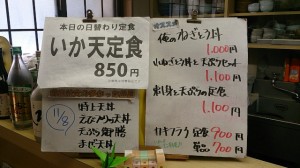 本日の日替わり定食
いか天定食
850円
11/8
特上天丼
えびアナゴ天丼
天ぷら御膳
まご天丼
オススメ
俺のねぎとろ丼
1.000円
小ねぎとろ丼と天ぷらセット
1.100円
刺身と天ぷらの定食
1.100円
カキフライ 定食 900円
単品 700円